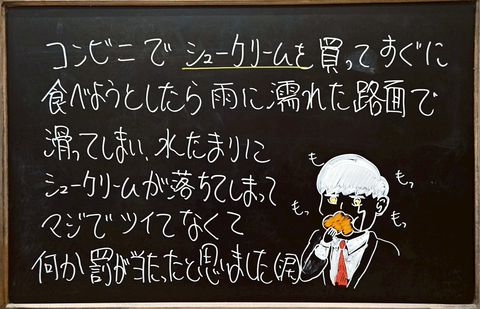 コンビニでシュークリームを買ってすぐに
食べようとしたら雨に濡れた路面で
滑ってしまい、水たまりに
シュークリームが落ちてしまって
マジでツイてなくて
何か罰が当たったと思いました(涙)
もっ
もっ
もっ
もっ